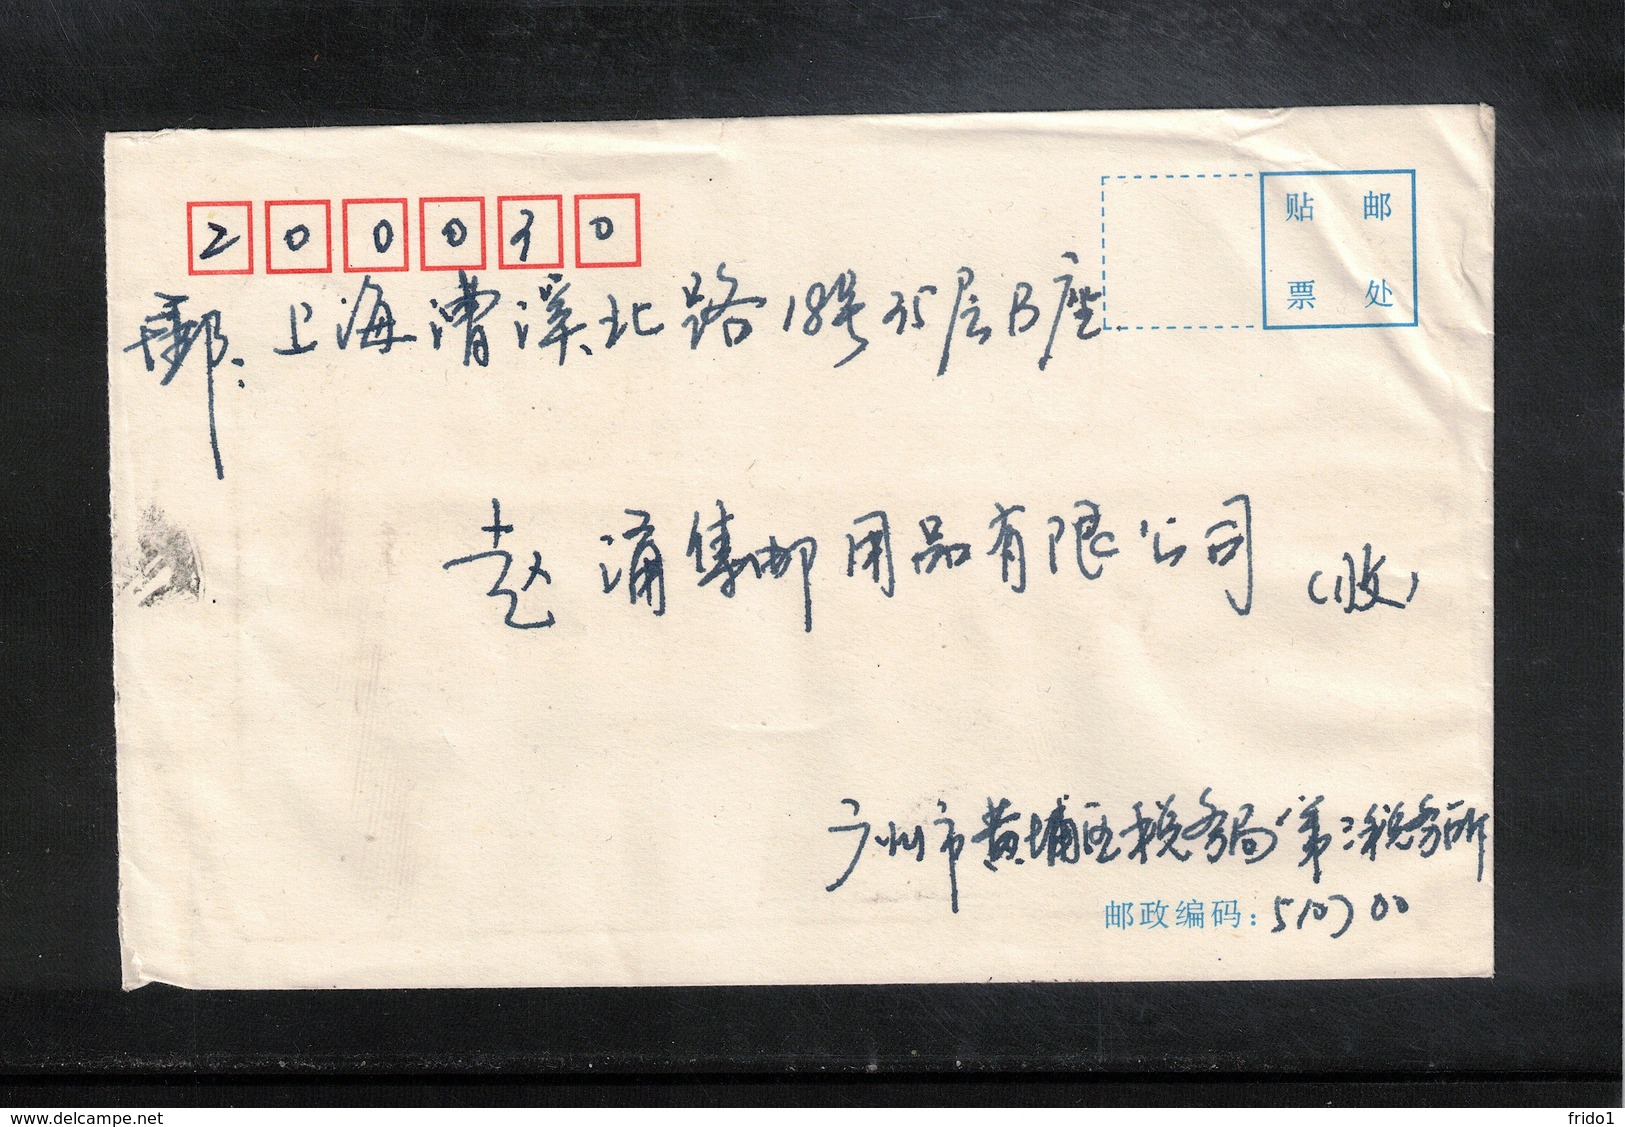 200030
贴 邮
票 处
邮:上海漕溪北路18号35层B座
赵涌集邮用品有限公司(收)
广州市黄埔区税务局第三税务所
邮政编码:510700
www.delcampe.net
frido1